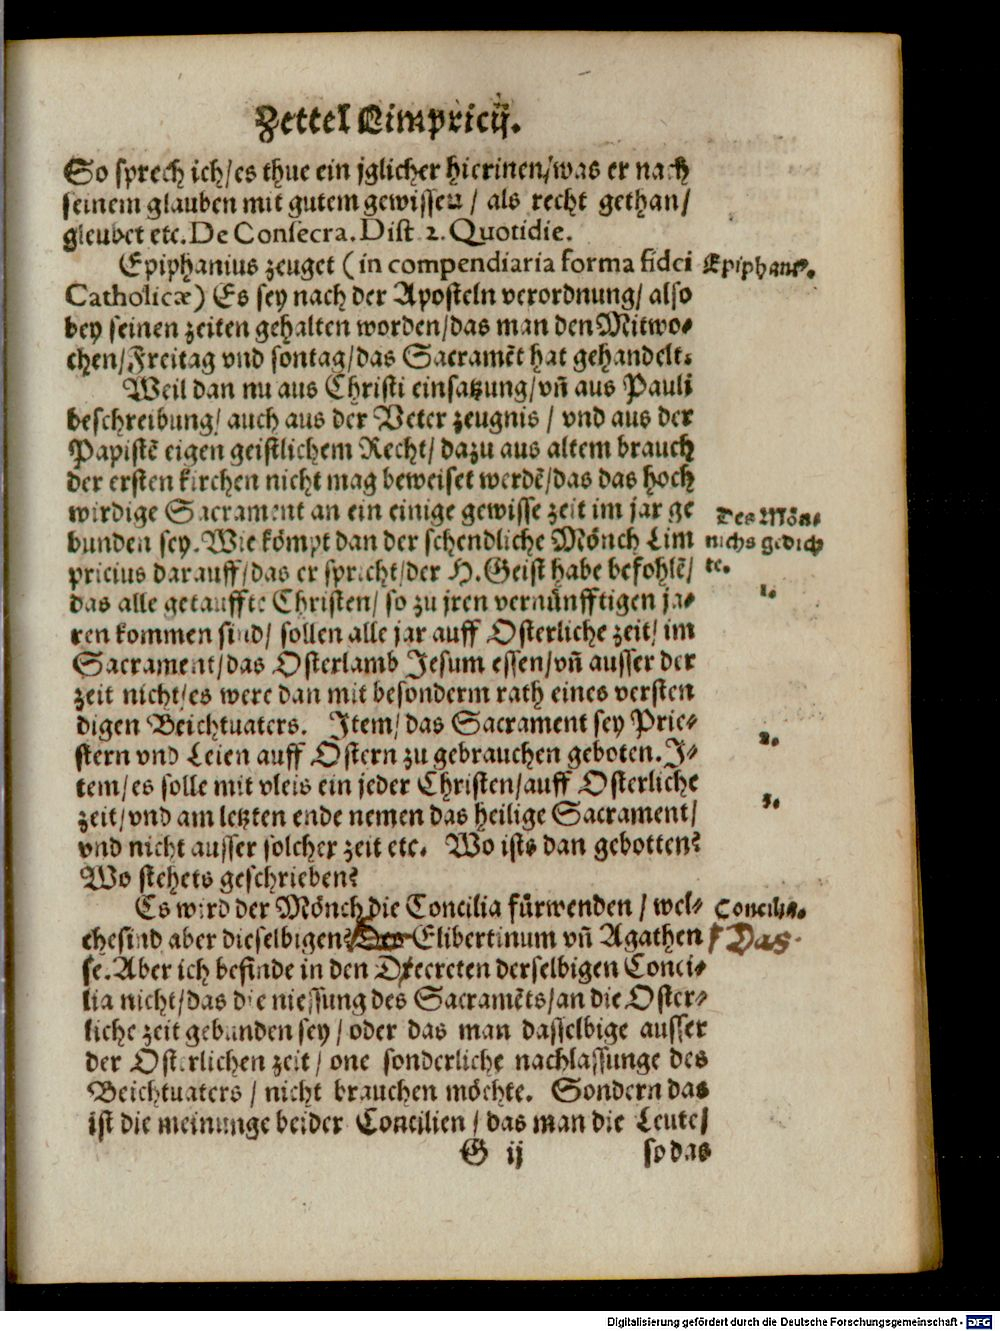 Zettel Limpricij.
So sprech ich/ es thue ein jglicher hierinen/ was er nach
seinem glauben mit gutem gewissen / als recht gethan/
gleubet etc. De Consecra. Dist 2. Quotidie.
Epiphanius zeuget (in compendiaria forma fidei
Epiphans.
Catholicæ) Es sey nach der Aposteln verordnung/ also
bey seinen zeiten gehalten worden/ das man den Mitwo-
chen/ Freitag vnd sontag/ das Sacramēt hat gehandelt.
Weil dan nu aus Christi einsatzung/ vñ aus Pauli
beschreibung/ auch aus der Veter zeugnis / vnd aus der
Papistē eigen geistlichem Recht/ dazu aus altem brauch
der ersten kirchen nicht mag beweiset werdē/ das das hoch
wirdige Sacrament an ein einige gewisse zeit im jar ge
Des Mön-
bunden sey. Wie kömpt dan der schendliche Mönch Lim
nichs gedich
pricius darauff/ das er spricht/ der H. Geist habe befohlē/
te.
das alle getauffte Christen/ so zu jren vernünfftigen ja-
1.
ren kommen sind/ sollen alle jar auff Osterliche zeit/ im
Sacrament/ das Osterlamb Jesum essen/ vñ ausser der
zeit nicht/ es were dan mit besonderm rath eines versten
digen Beichtuaters. Item/ das Sacrament sey Prie-
2.
stern vnd Leien auff Ostern zu gebrauchen geboten. J-
tem/ es solle mit vleis ein jeder Christen/ auff Osterliche
3.
zeit/ vnd am letzten ende nemen das heilige Sacrament/
vnd nicht ausser solcher zeit etc. Wo ists dan gebotten?
Wo stehets geschrieben?
Es wird der Mönch die Concilia fürwenden / wel-
Concilia.
chesind aber dieselbigen? Des Elibertinum vñ Agathen
Das
se. Aber ich befinde in den Decreten derselbigen Conci-
lia nicht/ das die niessung des Sacramēts/ an die Oster-
liche zeit gebunden sey / oder das man dasselbige ausser
der Osterlichen zeit / one sonderliche nachlassunge des
Beichtuaters / nicht brauchen möchte. Sondern das
ist die meinunge beider Concilien / das man die Leute/
G ij
so das
Digitalisierung gefördert durch die Deutsche Forschungsgemeinschaft - DFG